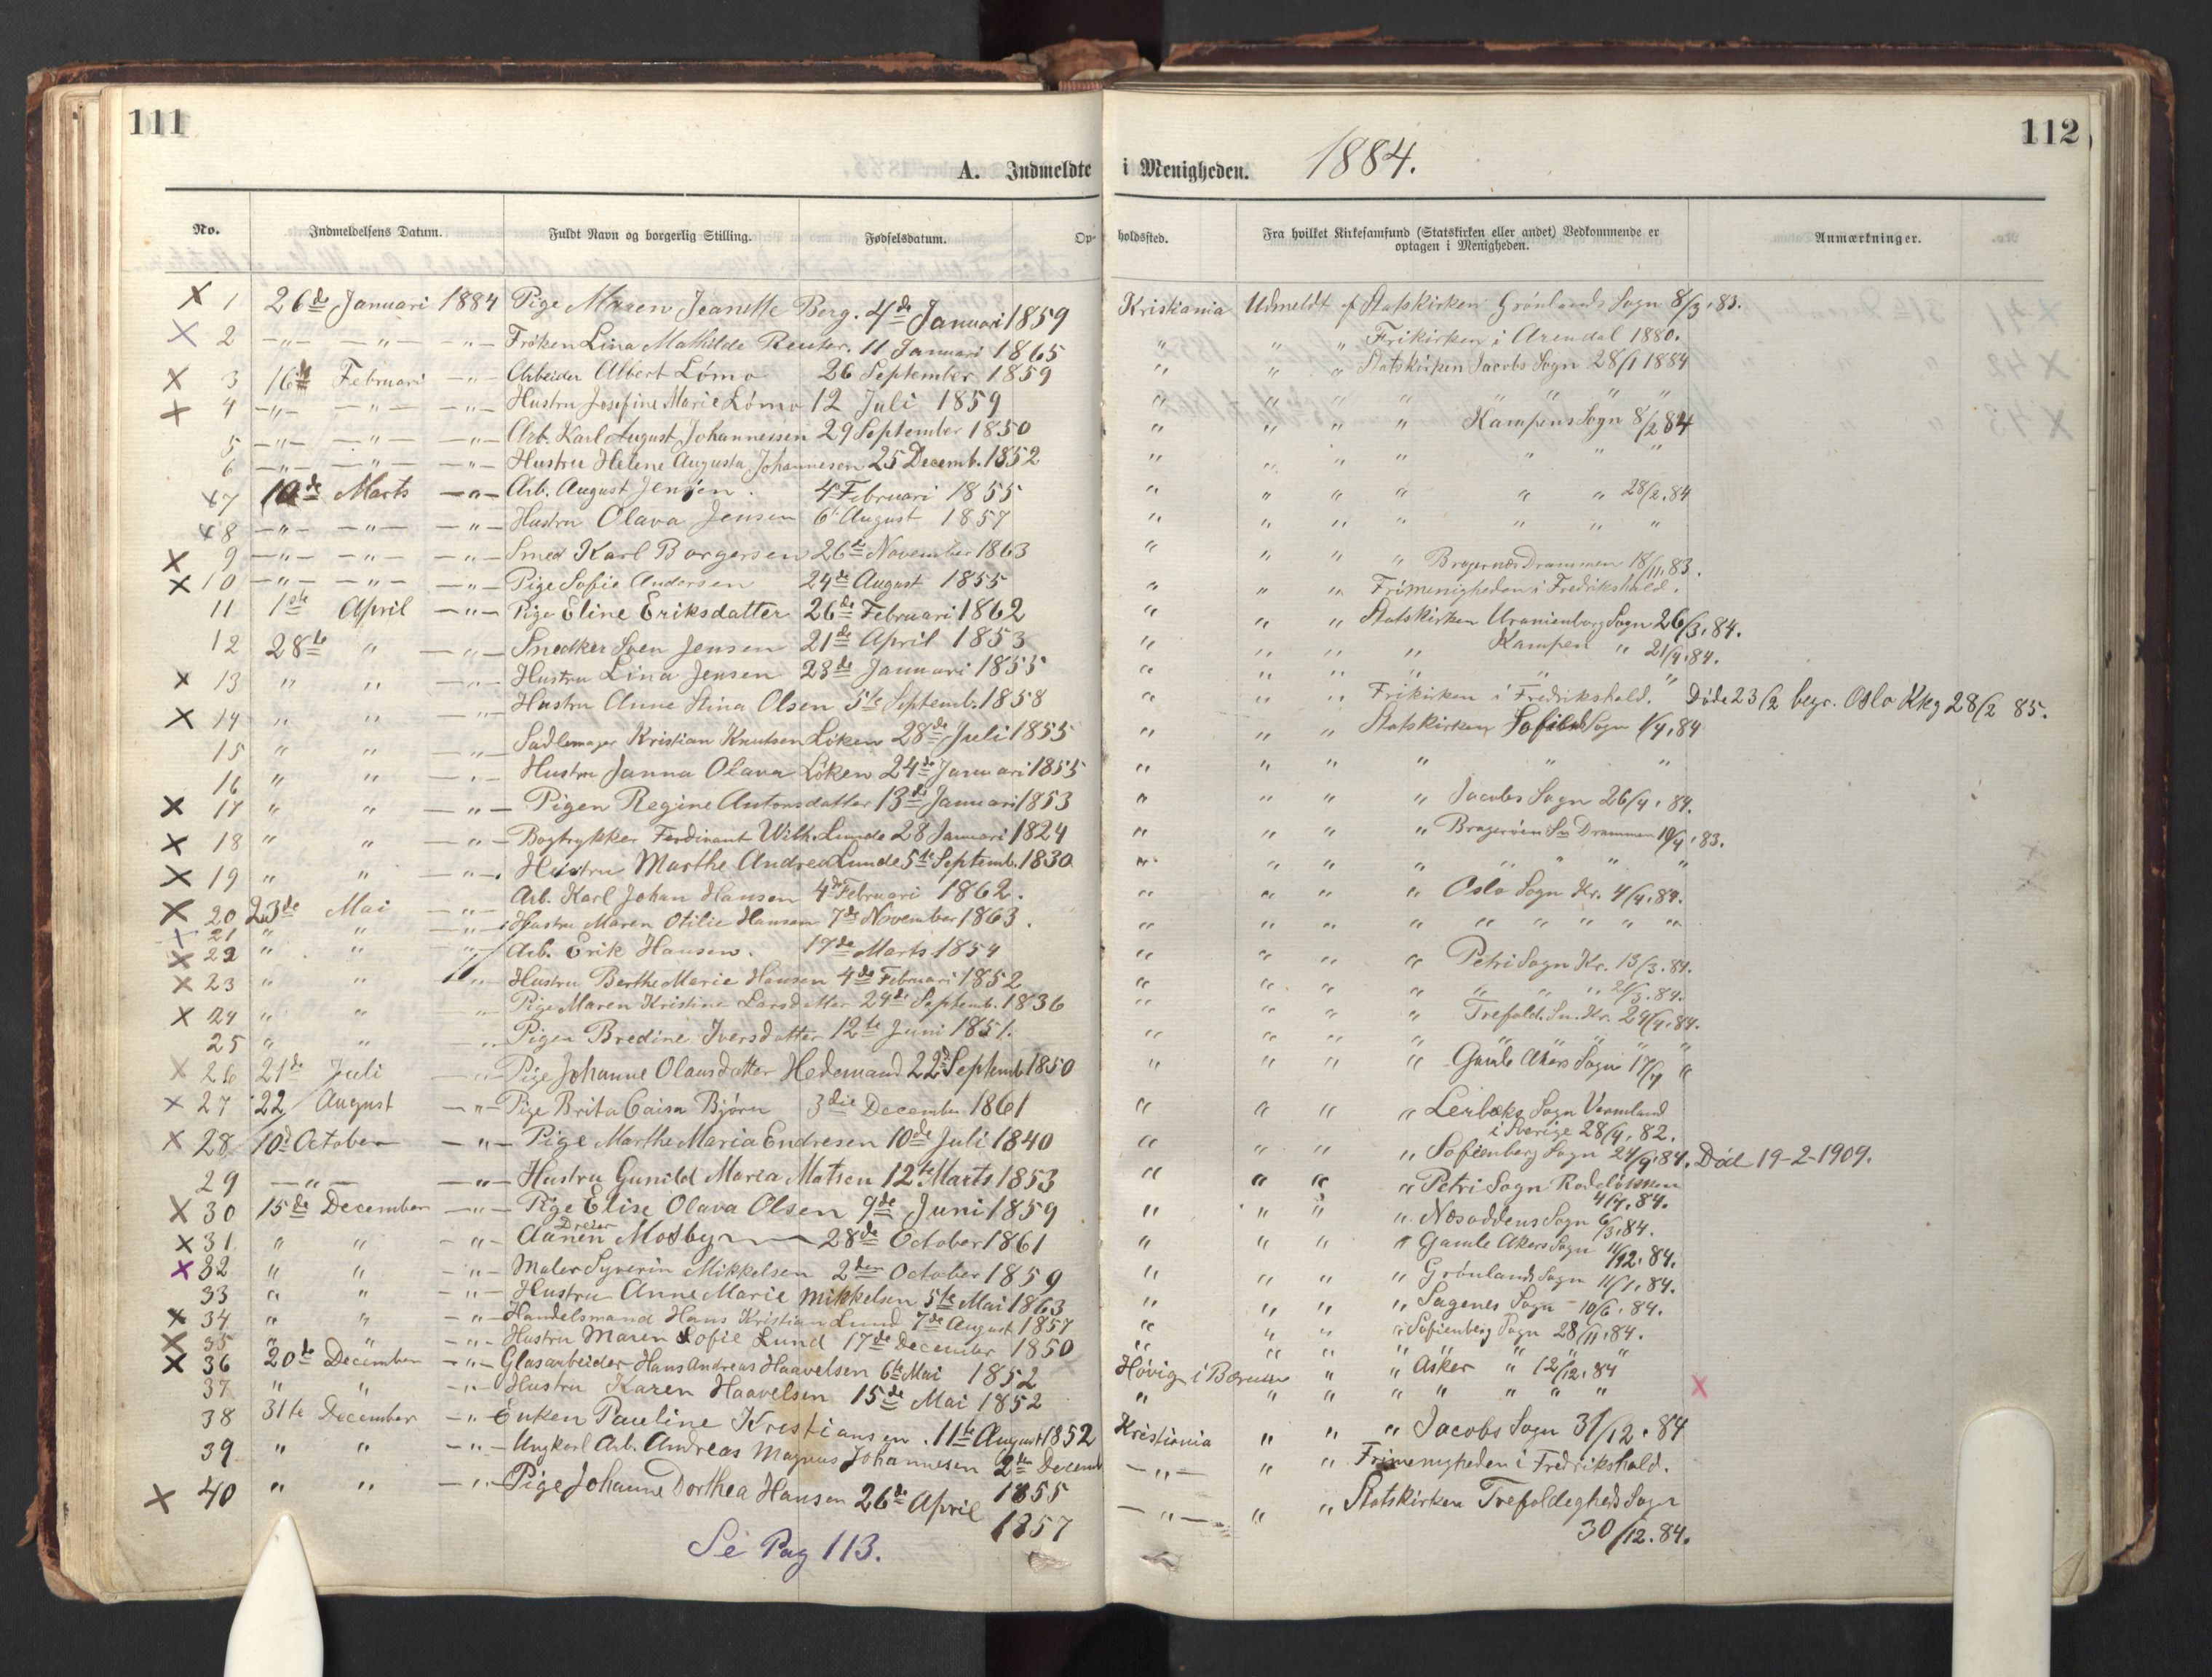 111
112
A. Indmeldte i Menigheden. 1884.
No. Indmeldelsens Datum. Fuldt Navn og borgerlig Stilling. Fødselsdatum. Opholdsted. Fra hvilket Kirkesamfund (Statskirken eller andet) Vedkommende er optagen i Menigheden. Anmærkninger.
X 1 26de Januari 1884 Pige Maren Jeanette Berg. 4de Januari 1859 Kristiania Udmeldt af Statskirken Grønlands Sogn 8/3.83.
X 2 -"- -"- -"- Frøken Lina Mathilde Reuter. 11 Januari 1865 " " " Frikirken i Arendal 1880.
X 3 16de Februari -"- Arbeider Albert Lømo 26 September 1859 " " " Statskirken Jacobs Sogn 28/1 1884
X 4 -"- -"- -"- Hustru Josefine Marie Lømo 12 Juli 1859 " " " " " " "
5 -"- -"- -"- Arb. Karl August Johannessen 29 September 1850 " " " " Kampens Sogn 8/2 84
6 -"- -"- -"- Hustru Helene Augusta Johannesen 25 Decemb. 1852 " " " " " " "
X 7 10de Marts -"- Arb. August Jensen. 4 Februari 1855 " " " " " " 28/2.84
X 8 -"- -"- -"- Hustru Olava Jensen 6 August 1857 " " " " " " "
X 9 -"- -"- -"- Smed Karl Borgersen 26de November 1863 " " " " Bragernæs Drammen 18/11.83.
X 10 -"- -"- -"- Pige Sofie Andersen 24de August 1855 " " " Frimenigheden i Fredrikshald.
11 1ste April -"- Pige Eline Eriksdatter 26de Februari 1862 " " " Statskirken Uranienborg Sogn 26/3.84.
12 28de " -"- Snedker Sven Jensen 21de April 1853 " " " " Kampen " 21/4.84.
X 13 " " -"- Hustru Lina Jensen 23de Januari 1855 " " " " " "
X 14 " " -"- Hustru Anne Stina Olsen 5te Septemb. 1858 " " " Frikirken i Fredrikshald. Døde 23/2 begr. Oslo Kkg 28/2 85.
15 " " -"- Sadlemager Kristian Knutsen Løken 28de Juli 1855 " " " Statskirken Sogn 1/4.84
16 " " -"- Hustru Janna Olava Løken 24de Januari 1855 " " " " " "
X 17 " " -"- Pigen Regine Antonsdatter 13de Januari 1853 " " " " Jacobs Sogn 26/4.84.
X 18 " " -"- Bogtrykker Ferdinant Wilh. Lunde 28 Januari 1824 " " " " Sn Drammen 19/4.83.
X 19 " " -"- Hustru Marthe Andrea Lunde 5te Septemb. 1830 " " " " " " " "
X 20 23de Mai -"- Arb. Karl Johan Hansen 4de Februari 1862. " " " " Oslo Sogn Kr. 4/4.84.
X 21 " " -"- Hustru Maren Otilie Hansen 7de November 1863. " " " " " " " " "
X 22 " " " Arb. Erik Hansen. 17de Marts 1854 " " " " Petri Sogn Kr. 13/3.84.
X 23 " " " Hustru Berthe Marie Hansen 4de Februari 1852 " " " " " " " 21/3.84.
X 24 " " -"- Pige Maren Kristine Larsdatter 24de Septemb. 1836 " " " " Trefold. Sn. Kr. 24/4.84.
25 " " -"- Pigen Bredine Iversdatter 12te Juni 1851. " " " " " " " "
X 26 21de Juli -"- Pige Johanne Olausdatter Hedemand 22de Septemb. 1850 " " " " Gamle Akers Sogn 17/7 "
X 27 22 August -"- Pige Brita Caisa Bjørn 3die December 1861 " " " " Lerbæks Sogn Vermland i Sverige 28/4.82.
X 28 10de October -"- Pige Marthe Maria Endresen 10de Juli 1840 " " " " Sofienberg Sogn 24/9.84. Død 19-2-1909.
29 -"- -"- Hustru Gunild Maria Matsen 12te Marts 1853 " " " " Petri Sogn Rodeløkken 4/7.84.
X 30 15de December -"- Pige Elise Olava Olsen 9de Juni 1859 " " " " Næsoddens Sogn 6/3.84.
X 31 " " -"- Dreier Aanen Mosby 28de October 1861 " " " " Gamle Akers Sogn 11/12.84.
X 32 " " -"- Maler Syverin Mikkelsen 2den October 1859 " " " " Grønlands Sogn 11/1.84.
33 " " -"- Hustru Anne Marie Mikkelsen 5te Mai 1863 " " " " Sagenes Sogn 10/6.84.
X 34 " " -"- Handelsmand Hans Kristian Lund 7de August 1857 " " " " Sofienberg Sogn 28/11.84.
X 35 " " -"- Hustru Maren Sofie Lund 17de December 1850 " " " " " " "
X 36 20de December -"- Glasarbeider Hans Andreas Haavelsen 6te Mai 1852 Høvig i Bærum " " Asker " 12/12.84
37 " " -"- Hustru Karen Haavelsen 15de Mai 1852 " " " " " " " " X
38 31te December -"- Enken Pauline Kristiansen. 11te August 1852 Kristiania " " " Jacobs Sogn 31/12.84
39 " " -"- Ungkarl Arb. Andreas Magnus Johannesen 2den Decemb 1855 -"- " " Frimenigheden i Fredrikshald.
X 40 " " -"- Pige Johanne Dorthea Hansen 26de April 1857 -"- " " Statskirken Trefoldigheds Sogn 30/12.84.
Se Pag 113.